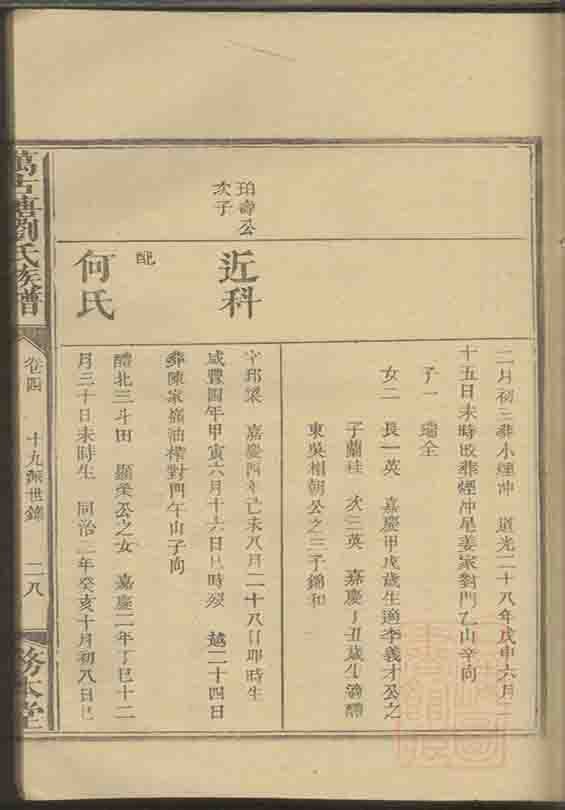 二月初三葬小煙冲　道光二十八年戊申六月二
十五日未時改葬煙冲尾姜家對門乙山辛向
子一　瑞全
女二　長一英　嘉慶甲戌歲生適李義才公之
子蘭桂　次三英　嘉慶丁丑歲生適醴
東吳相朝公之三子錦和
珀壽公
次子
近科
字邱
嘉慶四年己未八月二十八日卯時生
咸豐四年甲寅六月十六日巳時歿　越二十四日
葬陳家嶺油榨對門午山子向
配
何氏
醴北三斗田　顯榮公之女　嘉慶二年丁巳十二
月三十日未時生　同治二年癸亥十月初八日巳
萬古塘劉氏族譜
卷四　十九派世錄　二八
務本堂